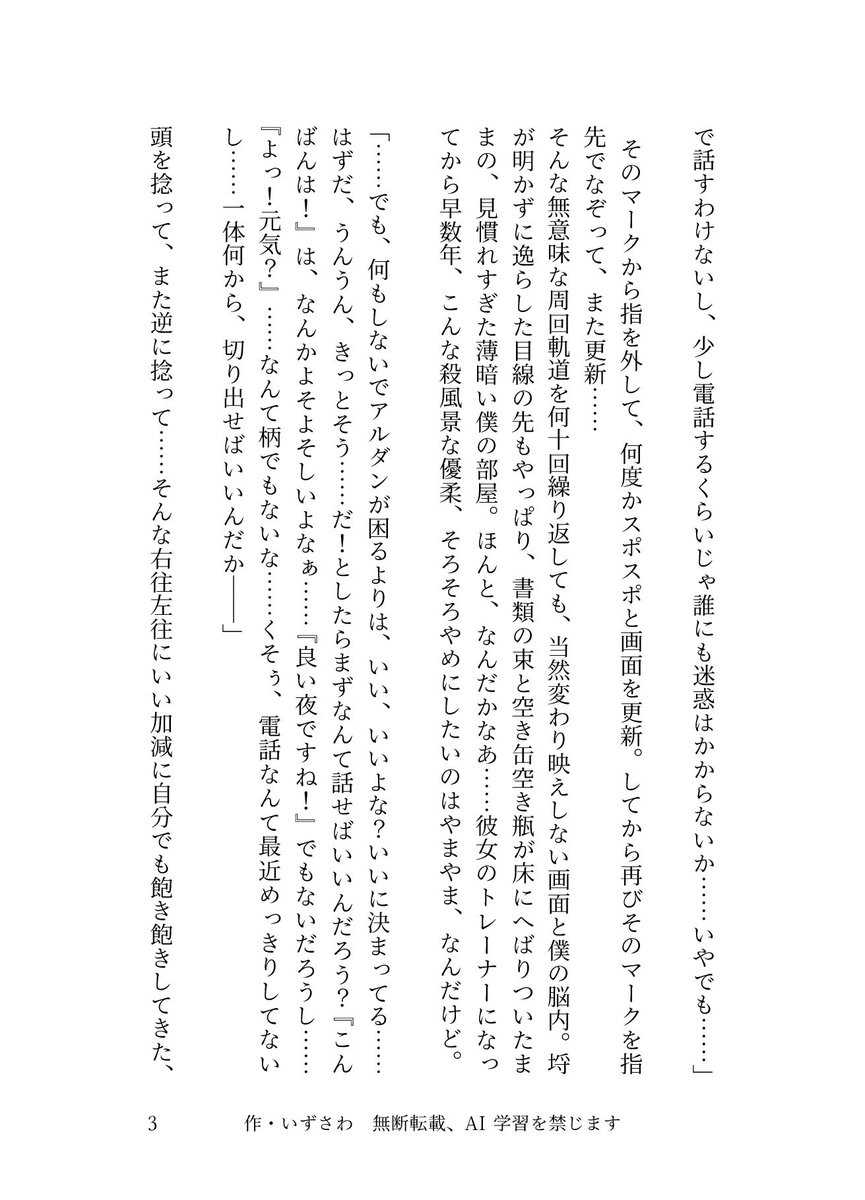 で話すわけないし、少し電話するくらいじゃ誰にも迷惑はかからないか……いやでも……」
　そのマークから指を外して、何度かスポスポと画面を更新。してから再びそのマークを指
先でなぞって、また更新……
そんな無意味な周回軌道を何十回繰り返しても、当然変わり映えしない画面と僕の脳内。埒
が明かずに逸らした目線の先もやっぱり、書類の束と空き缶空き瓶が床にへばりついたま
まの、見慣れすぎた薄暗い僕の部屋。ほんと、なんだかなあ……彼女のトレーナーになっ
てから早数年、こんな殺風景な優柔、そろそろやめにしたいのはやまやま、なんだけど。
「……でも、何もしないでアルダンが困るよりは、いい、いいよな？いいに決まってる……
はずだ、うんうん、きっとそう……だ！としたらまずなんて話せばいいんだろう？『こん
ばんは！』は、なんかよそよそしいよなぁ……『良い夜ですね！』でもないだろうし……
『よっ！元気？』……なんて柄でもないな……くそぅ、電話なんて最近めっきりしてない
し……一体何から、切り出せばいいんだか――」
頭を捻って、また逆に捻って……そんな右往左往にいい加減に自分でも飽き飽きしてきた、
3
作・いずさわ　無断転載、AI 学習を禁じます